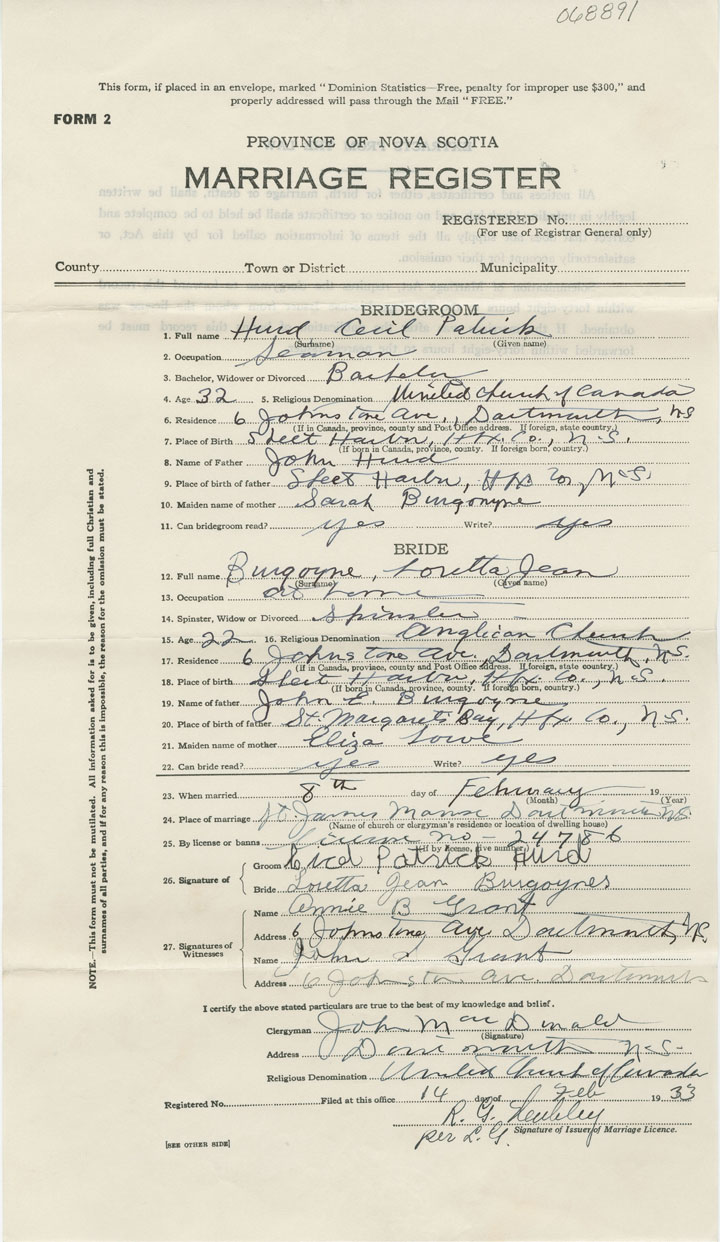 068891
This form, if placed in an envelope, marked "Dominion Statistics—Free, penalty for improper use $300," and
properly addressed will pass through the Mail "FREE."
FORM 2
PROVINCE OF NOVA SCOTIA
MARRIAGE REGISTER
REGISTERED No.
(For use of Registrar General only)
County Town or District Municipality
BRIDEGROOM
1. Full name Hurd Cecil Patrick
(Surname) (Given name)
2. Occupation Seaman
3. Bachelor, Widower or Divorced Bachelor
4. Age 32 5. Religious Denomination United Church of Canada
6. Residence 6 Johnstone Ave., Dartmouth, NS
(If in Canada, province, county and Post Office address. If foreign, state country.)
7. Place of Birth Sheet Harbor, Hfx Co., N.S.
(If born in Canada, province, county. If foreign born, country.)
8. Name of Father John Hurd
9. Place of birth of father Sheet Harbor, Hfx Co, N.S.
10. Maiden name of mother Sarah Burgoyne
11. Can bridegroom read? yes Write? yes
BRIDE
12. Full name Burgoyne, Loretta Jean
(Surname) (Given name)
13. Occupation at home
14. Spinster, Widow or Divorced Spinster
15. Age 22 16. Religious Denomination Anglican Church
17. Residence 6 Johnstone Ave. Dartmouth, N.S.
(If in Canada, province, county and Post Office address. If foreign, state country.)
18. Place of birth Sheet Harbor, Hfx Co., N.S.
(If born in Canada, province, county. If foreign born, country.)
19. Name of father John E. Burgoyne
20. Place of birth of father St. Margarets Bay, Hfx Co., N.S.
21. Maiden name of mother Eliza Lowe
22. Can bride read? yes Write? yes
23. When married 8th day of February 19
(Month) (Year)
24. Place of marriage St. James Manse Dartmouth N.S.
(Name of church or clergyman's residence or location of dwelling house)
25. By license or banns License no - 24786
(If by license, give number)
26. Signature of Groom Cecil Patrick Hurd
Bride Loretta Jean Burgoynes
27. Signatures of Witnesses
Name Annie B Grant
Address 6 Johnstone Ave Dartmouth NS
Name John Grant
Address 6 Johnston Ave. Dartmouth
I certify the above stated particulars are true to the best of my knowledge and belief.
Clergyman John MacDonald
(Signature)
Address Dartmouth N.S.
Religious Denomination United Church of Canada
Registered No. Filed at this office 14 day of Feb 1933
R. G.
per L. G. Signature of Issuer of Marriage Licence.
[SEE OTHER SIDE]
NOTE.—This form must not be mutilated. All information asked for is to be given, including full Christian and
surnames of all parties, and if for any reason this is impossible, the reason for the omission must be stated.